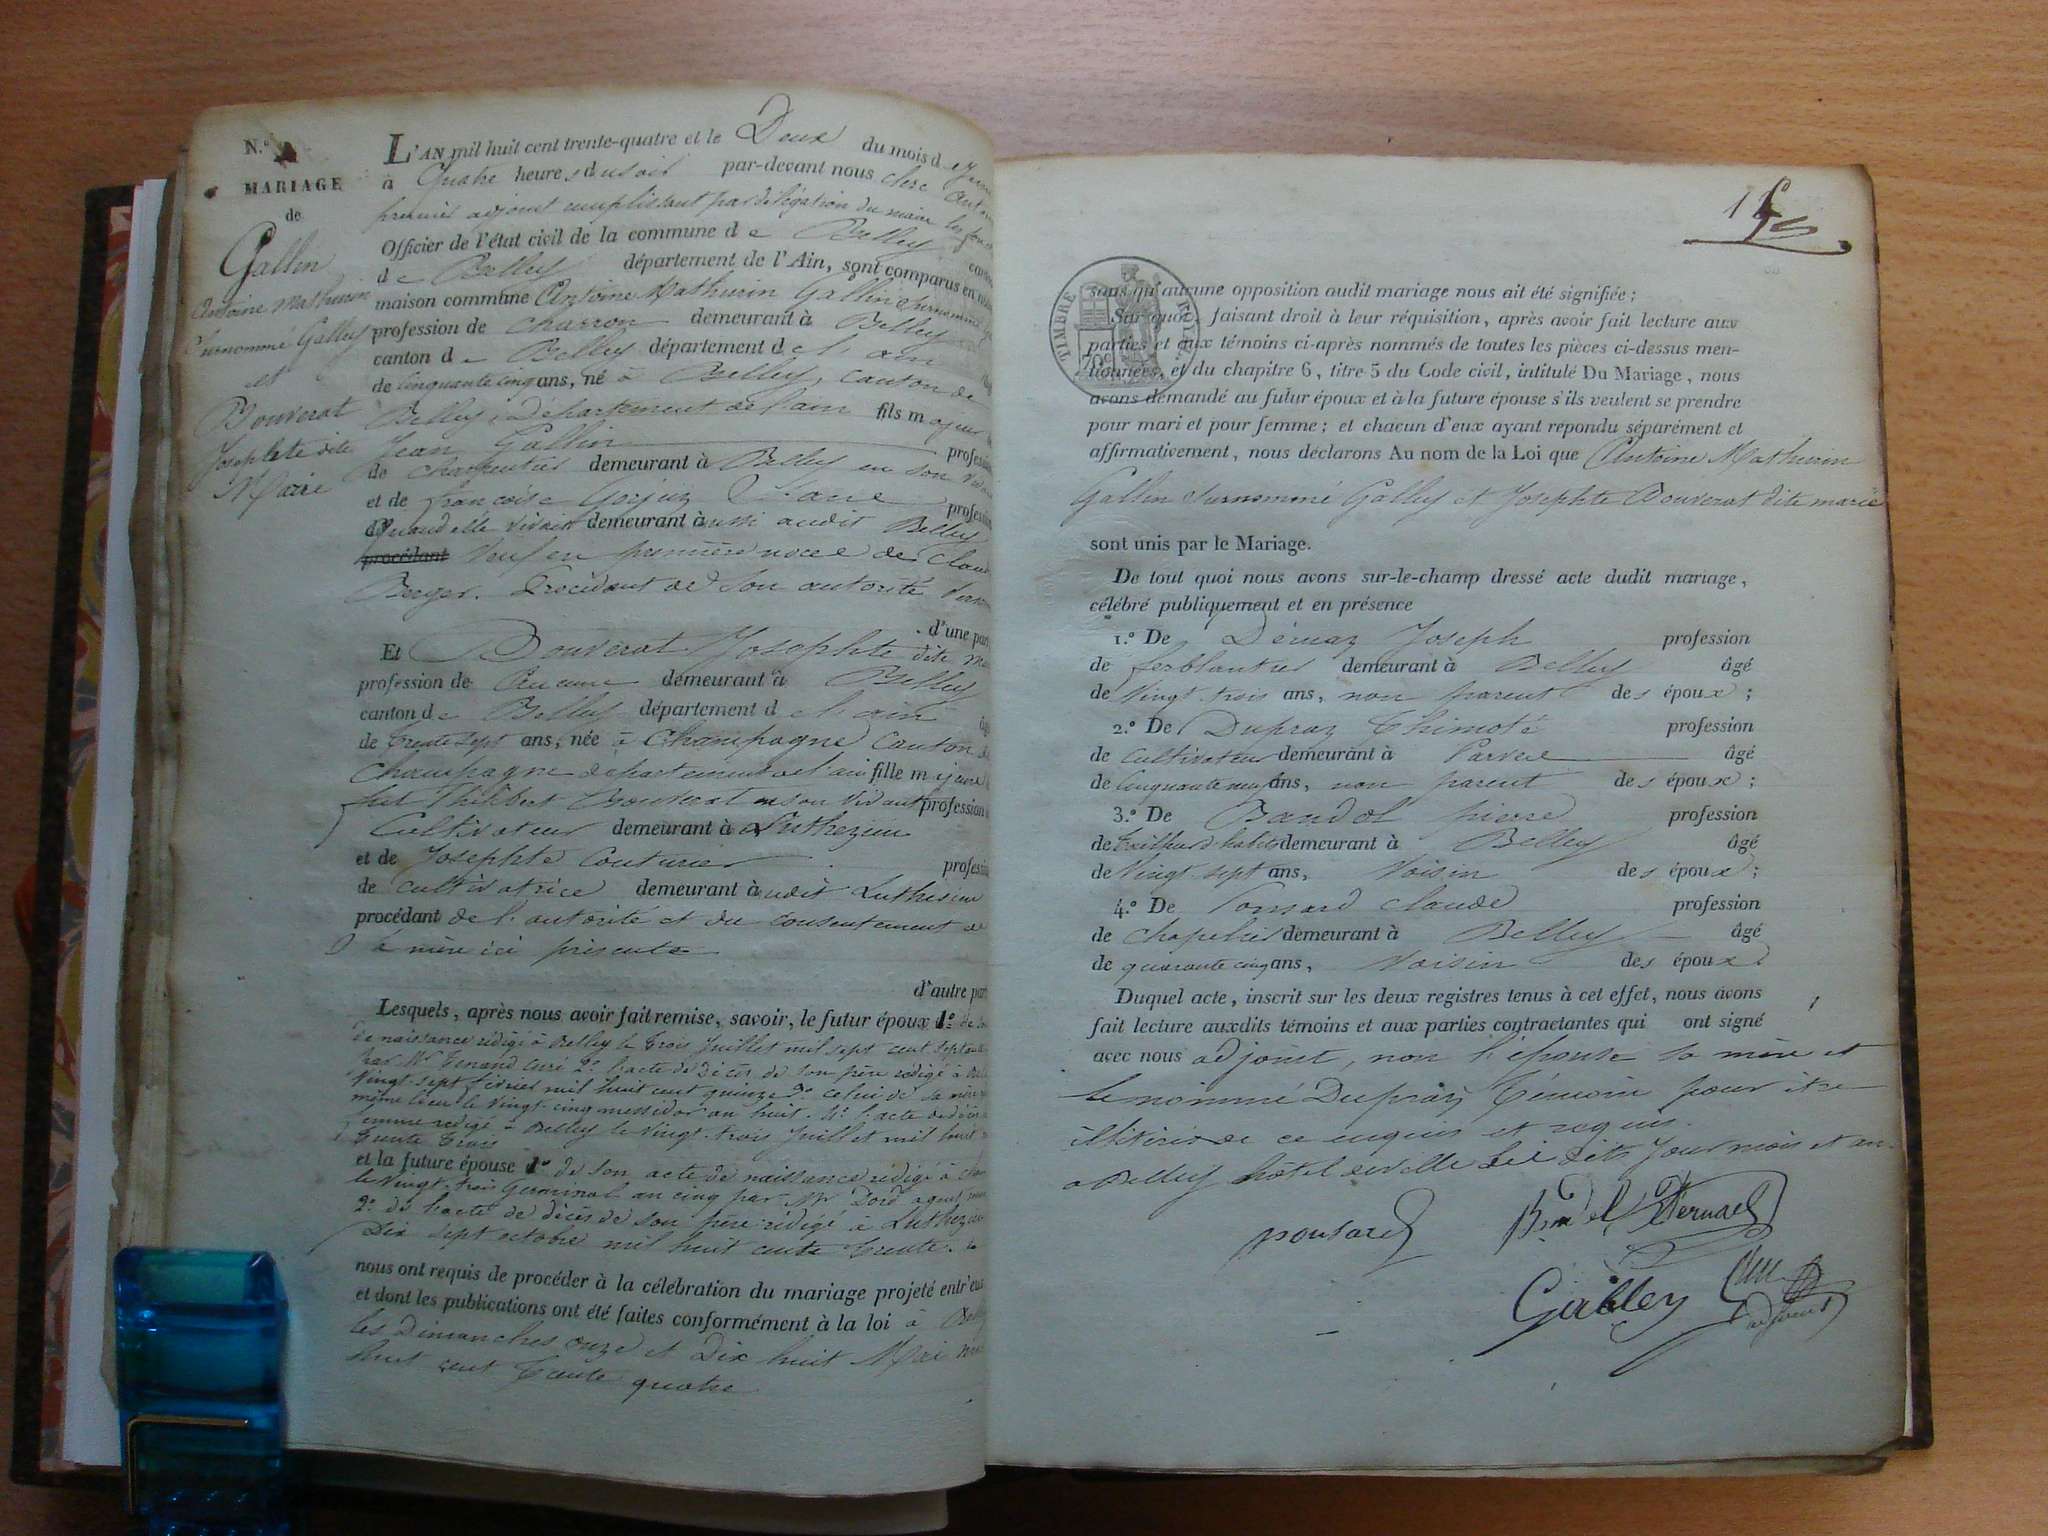 N.º
MARIAGE
de
Gallin
Antoine Mathurin
Surnommé Galley
et
Bouverat
Josephte dite
Marie
L'AN mil huit cent trente-quatre et le Deux du mois de Juin
à Quatre heures du soir par-devant nous Clerc Antoi
premier adjoint remplissant par délégation du maire les fonc
Officier de l'état civil de la commune de Belley canton
de Belley département de l'Ain, sont comparus en
maison commune Antoine Mathurin Gallin surnommé
profession de charron demeurant à Belley
canton de Belley département de l'ain
de Cinquante cinq ans, né à Belley, Canton de
Belley, Département de l'ain fils majeur
Jean Gallin profession
de charpentier demeurant à Belley en son vivant
et de françoise Gorjux profession
d Quand elle vivait demeurant aussi audit Belley
procédant Veuf en première noce de Claud
Berger. Procédant de Son autorité
d'une part
Et Bouverat Josephte dite Ma
profession de Aucune demeurant à Belley
canton de Belley département de l'ain
de trente sept ans, née à Champagne Canton de
Champagne département de l'ain fille majeure
feu Thibbert Bouverat en son vivant profession
Cultivateur demeurant à Luthezieu
et de Josephte Couturier profession
de cultivatrice demeurant audit Luthesieu
procédant de l'autorité et du consentement de
sa mère ici présente
d'autre part
Lesquels, après nous avoir fait remise, savoir, le futur époux 1º de so
de naissance rédigé à Belley le trois Juillet mil sept cent septante
par Mr curé 2º l'acte de décès de son père rédigé à Bel
Vingt-sept février mil huit cent quinze 3º celui de sa mère
même lieu le Vingt-cinq messidor an huit. 4º l'acte de décès
femme redigé à Belley le Vingt-trois Juillet mil huit
trente trois
et la future épouse 1º de son acte de naissance rédigé à Cham
le Vingt-trois Germinal an cinq par Mr agent
2º de l'acte de décès de son père rédigé à Luthezieu
Dix sept octobre mil huit cent trente.
nous ont requis de procéder à la célébration du mariage projeté entr'eux
et dont les publications ont été faites conformément à la loi à Belley
les Dimanches onze et Dix huit Mai mil
huit cent trente quatre
TIMBRE ROYAL
70c
sans qu'aucune opposition audit mariage nous ait été signifiée ;
Sur quoi, faisant droit à leur réquisition, après avoir fait lecture aux
parties et aux témoins ci-après nommés de toutes les pièces ci-dessus men-
tionnées, et du chapitre 6, titre 5 du Code civil, intitulé Du Mariage, nous
avons demandé au futur époux et à la future épouse s'ils veulent se prendre
pour mari et pour femme ; et chacun d'eux ayant répondu séparément et
affirmativement, nous déclarons Au nom de la Loi que Antoine Mathurin
Gallin Surnommé Galley et Josephte Bouverat dite marie
sont unis par le Mariage.
De tout quoi nous avons sur-le-champ dressé acte dudit mariage,
célébré publiquement et en présence
1.º De Démaz Joseph profession
de ferblantier demeurant à Belley âgé
de Vingt-trois ans, non parent des époux ;
2.º De Dupraz Thimoté profession
de Cultivateur demeurant à Parves âgé
de Cinquante neuf ans, non parent des époux ;
3.º De Bandol pierre profession
de tailleur d'habits demeurant à Belley âgé
de Vingt-sept ans, Voisin des époux ;
4.º De Ponsard Claude profession
de chapelier demeurant à Belley âgé
de quarante cinq ans, Voisin des époux
Duquel acte, inscrit sur les deux registres tenus à cet effet, nous avons
fait lecture auxdits témoins et aux parties contractantes qui ont signé
avec nous adjoint, non l'épouse sa mère et
le nommé Dupraz, témoin pour être
illitérés de ce enquis et requis.
a Belley hôtel de ville les dits Jour mois et an.
ponsard
Galley
adjoint